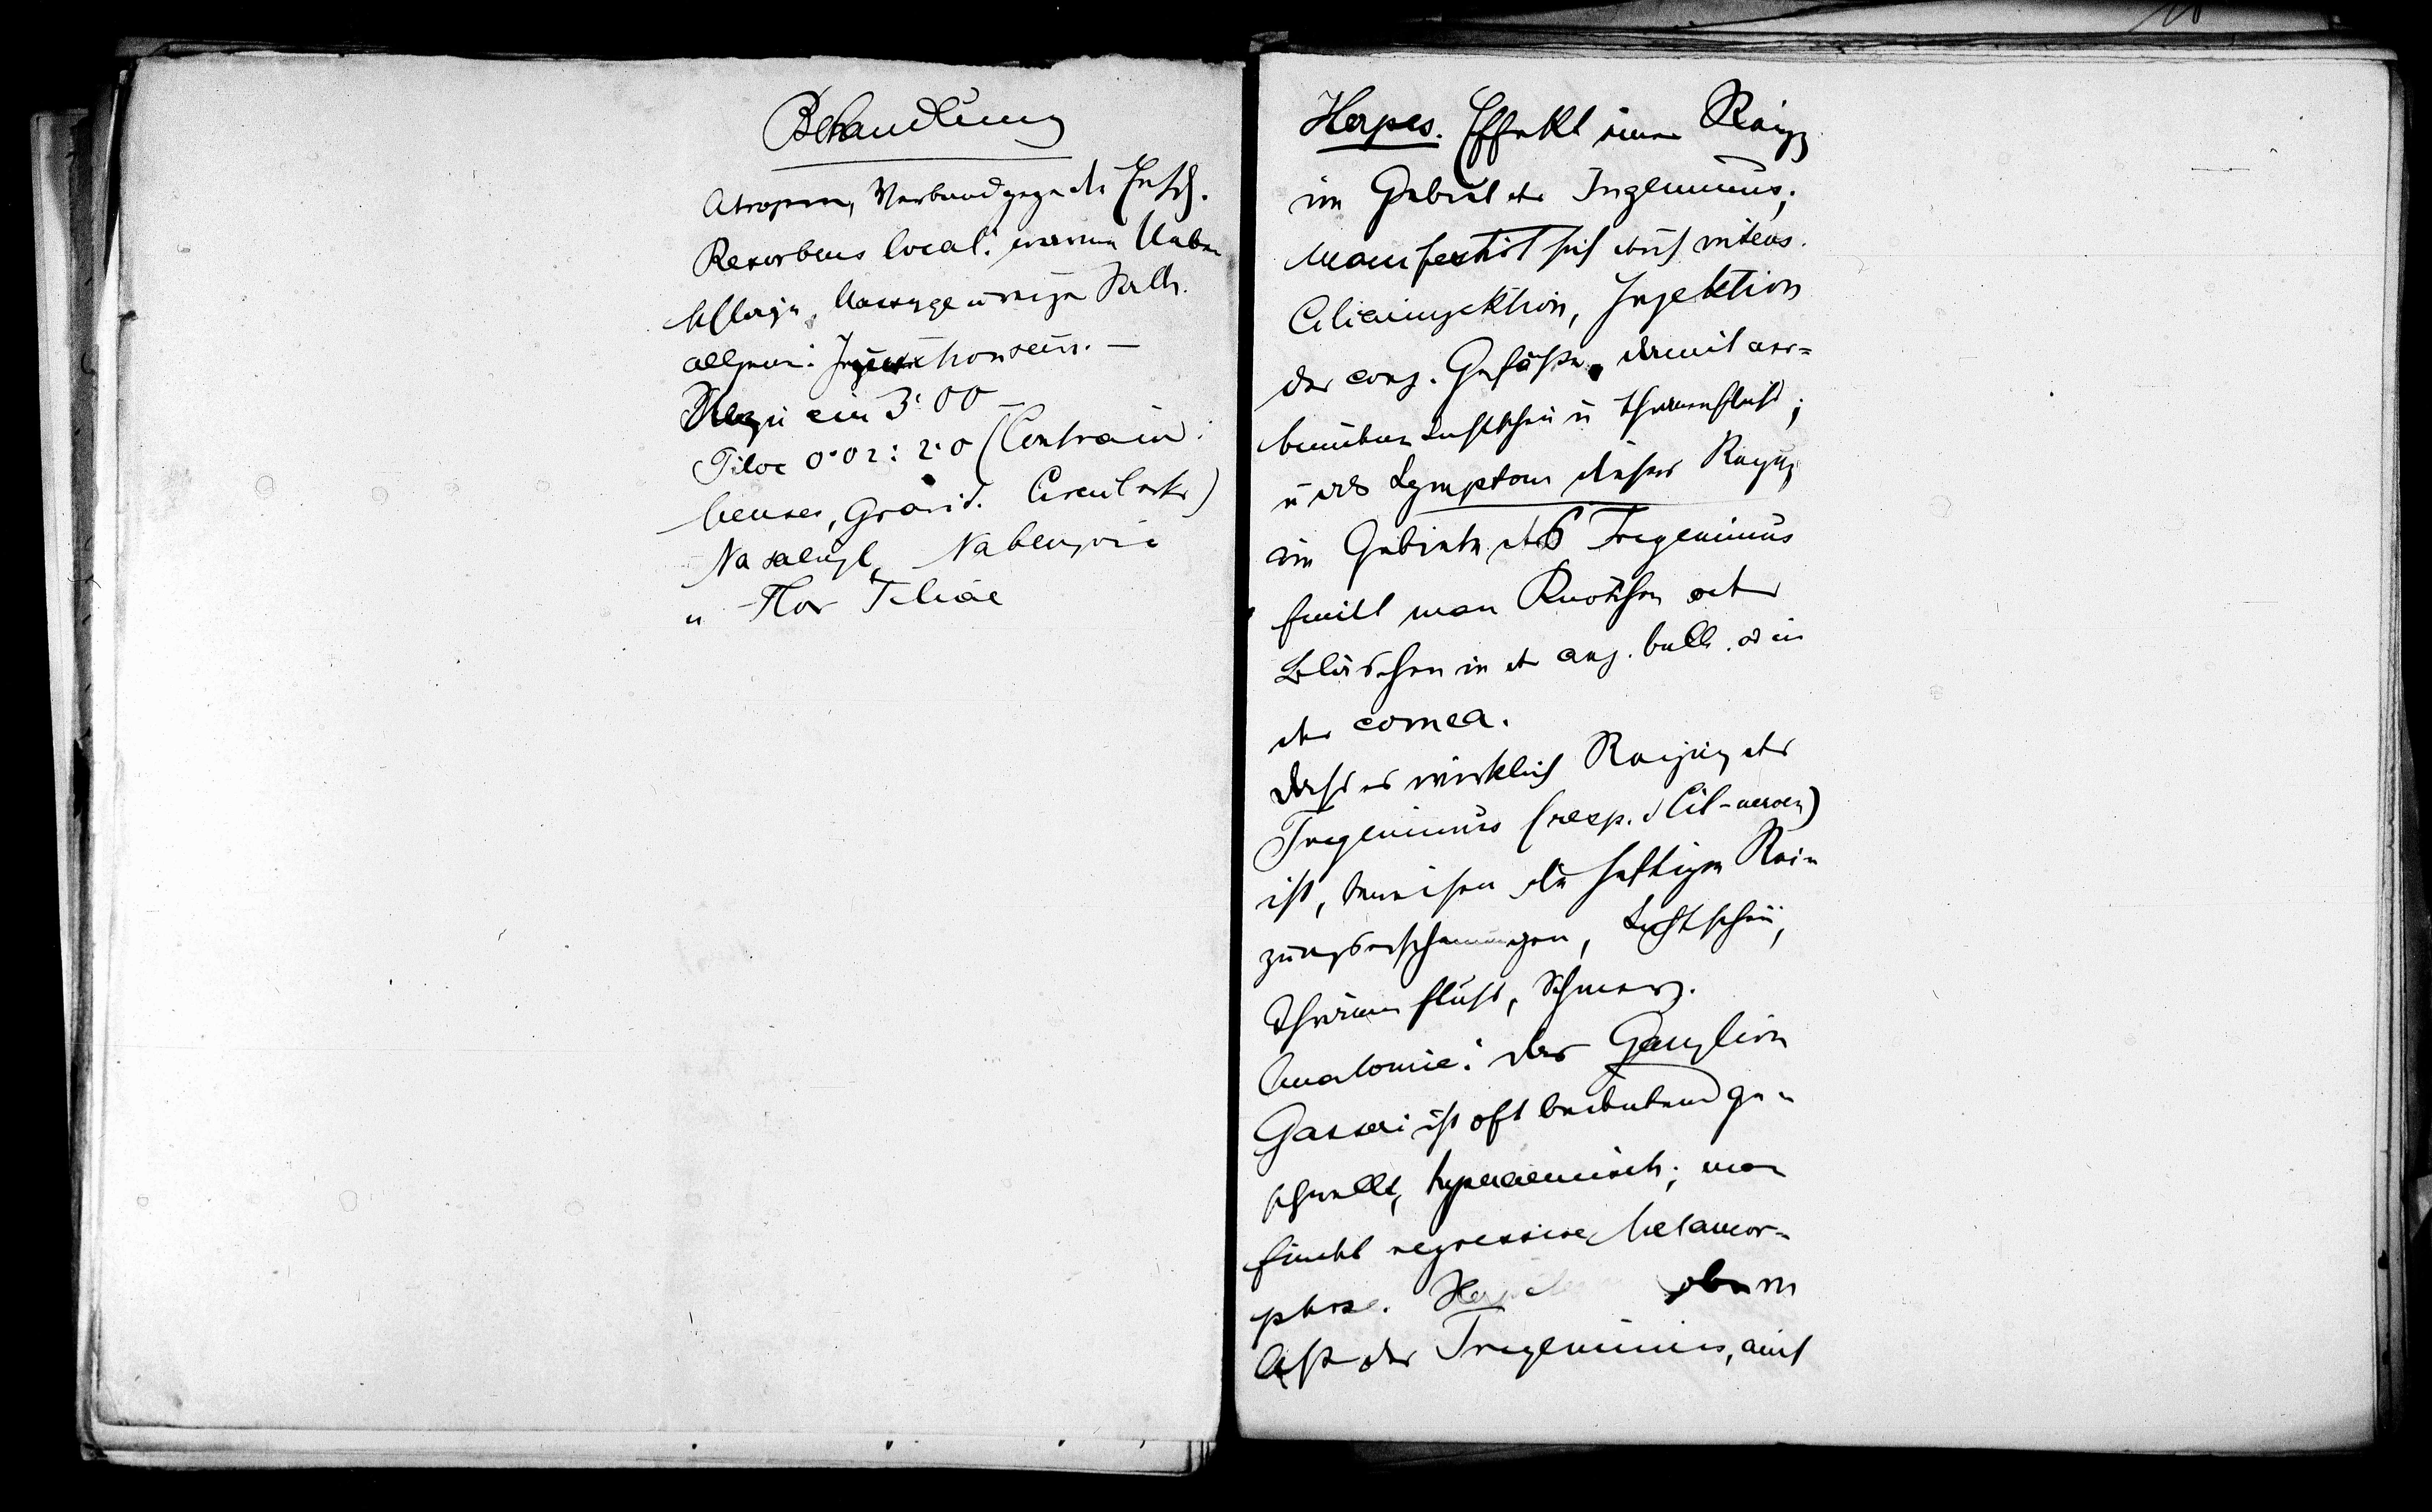 Behandlung
Atropin, Verband gegen die Entz.
Resorbens local: warme Ueber
schläge, Massage u einige Salb.
allgem:
3·00
Piloc 0·02 : 2·0 (Contraind:
Menses, Gravid. Circul
Na salicyl, Na benzoic
u Flor Tiliae
Herpes. Effekt einer Reizg
im Gebiet des Trigeminus;
manifestirt sich durch intens.
Ciliarinjektion, Injektion
der conj. Gefäße, damit ver=
bunden Lichtscheu u Thränenfluß;
u als Symptom dieser Reizug
im Gebiete des Trigeminus
findet man Knötchen oder
Bläschen in der conj. bulb. od in
der cornea.
Daß es wirklich Reizung des
Trigeminus (resp. d Cil-nerven)
ist, beweisen die heftigen Rei=
zungserscheinungen, Lichtscheu,
Thränenfluß, Schmerz.
Anatomie: das Ganglion
Gasseri ist oft bedeutend ge=
schwellt, hyperaemisch; man
findet regressive Metamor=
phose. obern
Aste des Trigeminus, auch